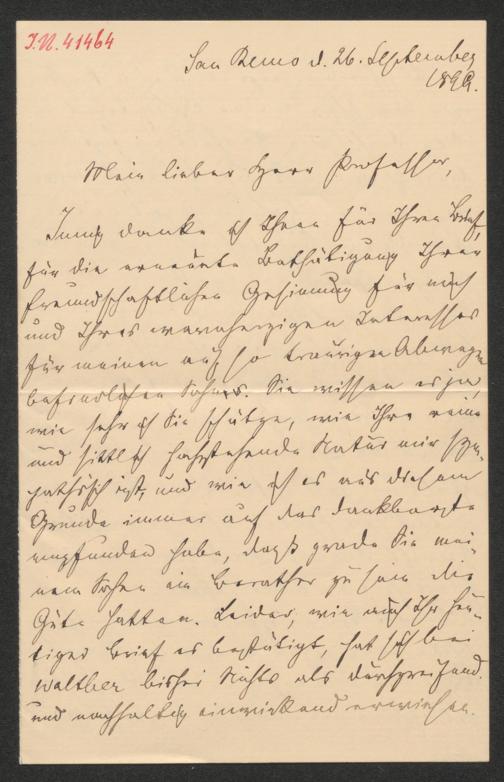 I.N. 41464
San Remo d. 26. September
1892.
Mein lieber Herr Professor,
Innig danke ich Ihnen für Ihren Brief,
für die erneuerte Bethätigung Ihrer
freundschaftlichen Gesinnung für mich
und Ihres warmherzigen Interesses
für meinen auf so traurigen Abwegen
befindlichen Sohnes. Sie wissen es ja
wie sehr ich Sie schätze, wie Ihre reine
und sittlich hochstehende Natur mir sym-
pathisch ist, und wie ich es aus diesem
Grunde immer auf das dankbarste
empfunden habe, daß grade Sie mei-
nem Sohne ein Berather zu sein die
Güte hatten. Leider, wie auch Ihr heu-
tiger Brief es bestätigt, hat sich bei
Walther bisher Nichts als durchgreifend
und nachhaltig einwirkend erwiesen.